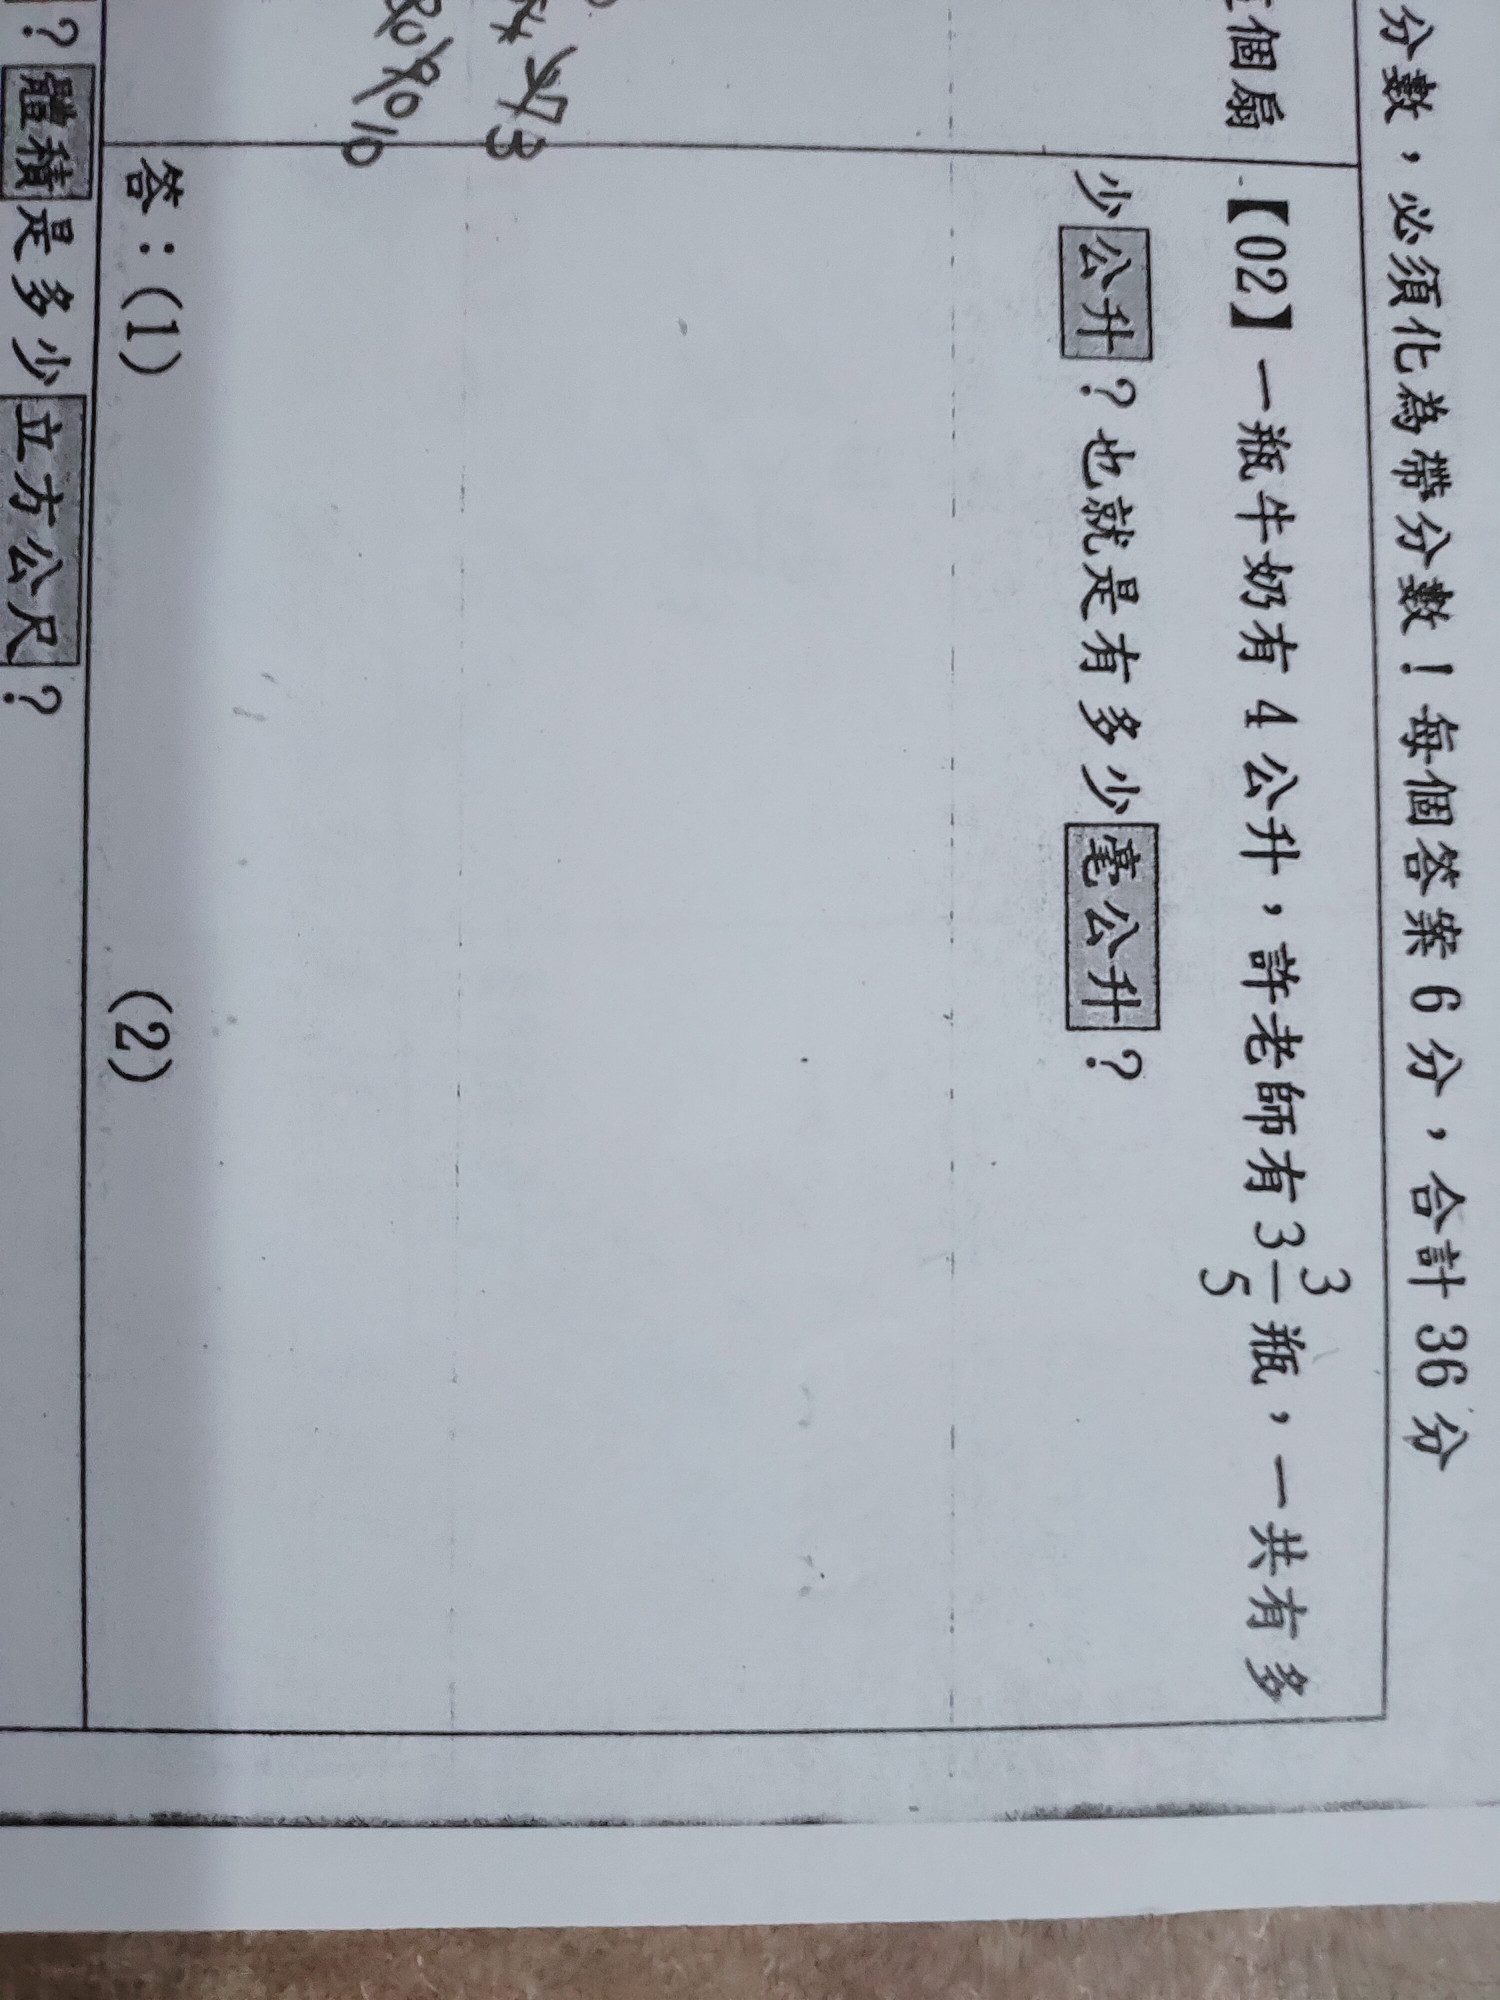 分數，必須化為帶分數！每個答案6分，合計36分
個扇
【02】一瓶牛奶有4公升，許老師有3 3/5瓶，一共有多
少公升？也就是有多少毫公升？
答：(1) (2)
？體積是多少立方公尺？